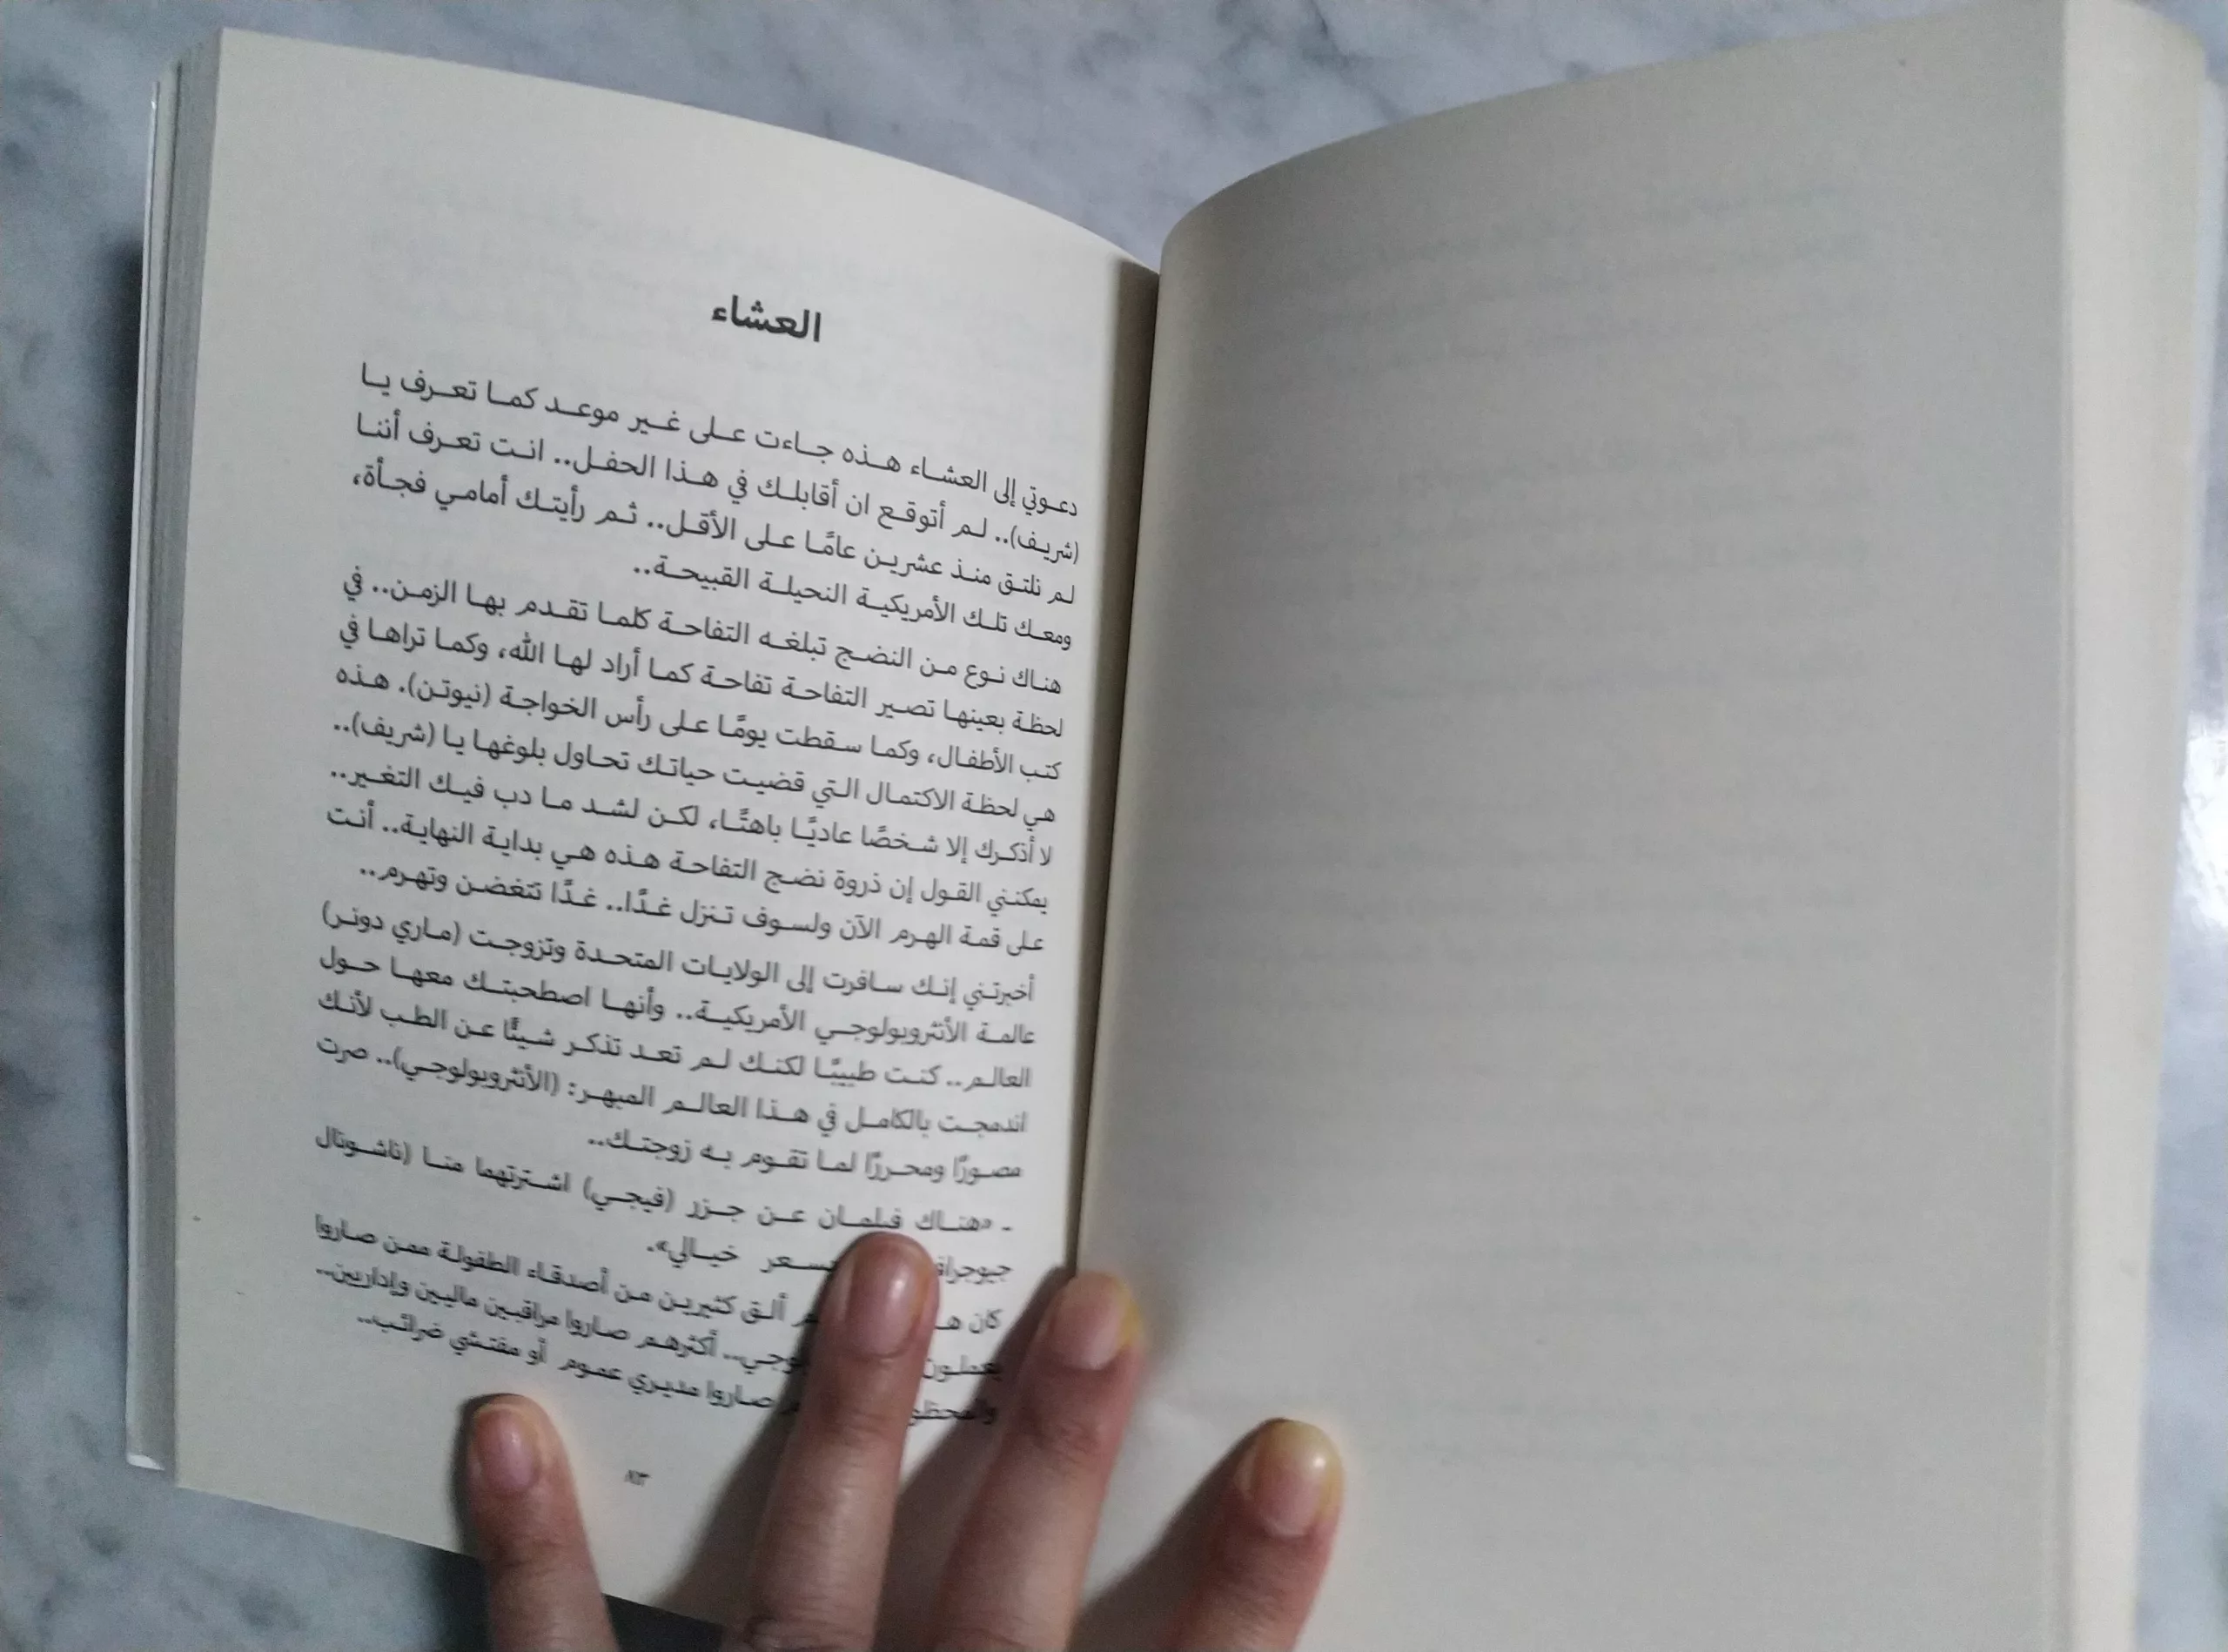 العشاء
دعوتي إلى العشاء هذه جاءت على غير موعد كما تعرف يا
(شريف).. لم أتوقع ان أقابلك في هذا الحفل.. انت تعرف أننا
لم نلتق منذ عشرين عامًا على الأقل.. ثم رأيتك أمامي فجأة،
ومعك تلك الأمريكية النحيلة القبيحة..
هناك نوع من النضج تبلغه التفاحة كلما تقدم بها الزمن.. في
لحظة بعينها تصير التفاحة تفاحة كما أراد لها الله، وكما تراها في
كتب الأطفال، وكما سقطت يومًا على رأس الخواجة (نيوتن). هذه
هي لحظة الاكتمال التي قضيت حياتك تحاول بلوغها يا (شريف)..
لا أذكرك إلا شخصًا عاديًا باهتًا، لكن لشد ما دب فيك التغير..
يمكنني القول إن ذروة نضج التفاحة هذه هي بداية النهاية.. أنت
على قمة الهرم الآن ولسوف تنزل غدًا.. غدًا تتغضن وتهرم..
أخبرتني إنك سافرت إلى الولايات المتحدة وتزوجت (ماري دونر)
عالمة الأنثروبولوجي الأمريكية.. وأنها اصطحبتك معها حول
العالم.. كنت طبيبًا لكنك لم تعد تذكر شيئًا عن الطب لأنك
اندمجت بالكامل في هذا العالم المبهر: (الأنثروبولوجي).. صرت
مصورًا ومحررًا لما تقوم به زوجتك..
- «هناك فيلمان عن جزر (فيجي) اشترتهما منا (ناشونال
بسعر خيالي».
كان ألق كثيرين من أصدقاء الطفولة ممن صاروا
يعملون أكثرهم صاروا مراقبين ماليين وإداريين..
صاروا مديري عموم أو مفتشي ضرائب..
٨٣